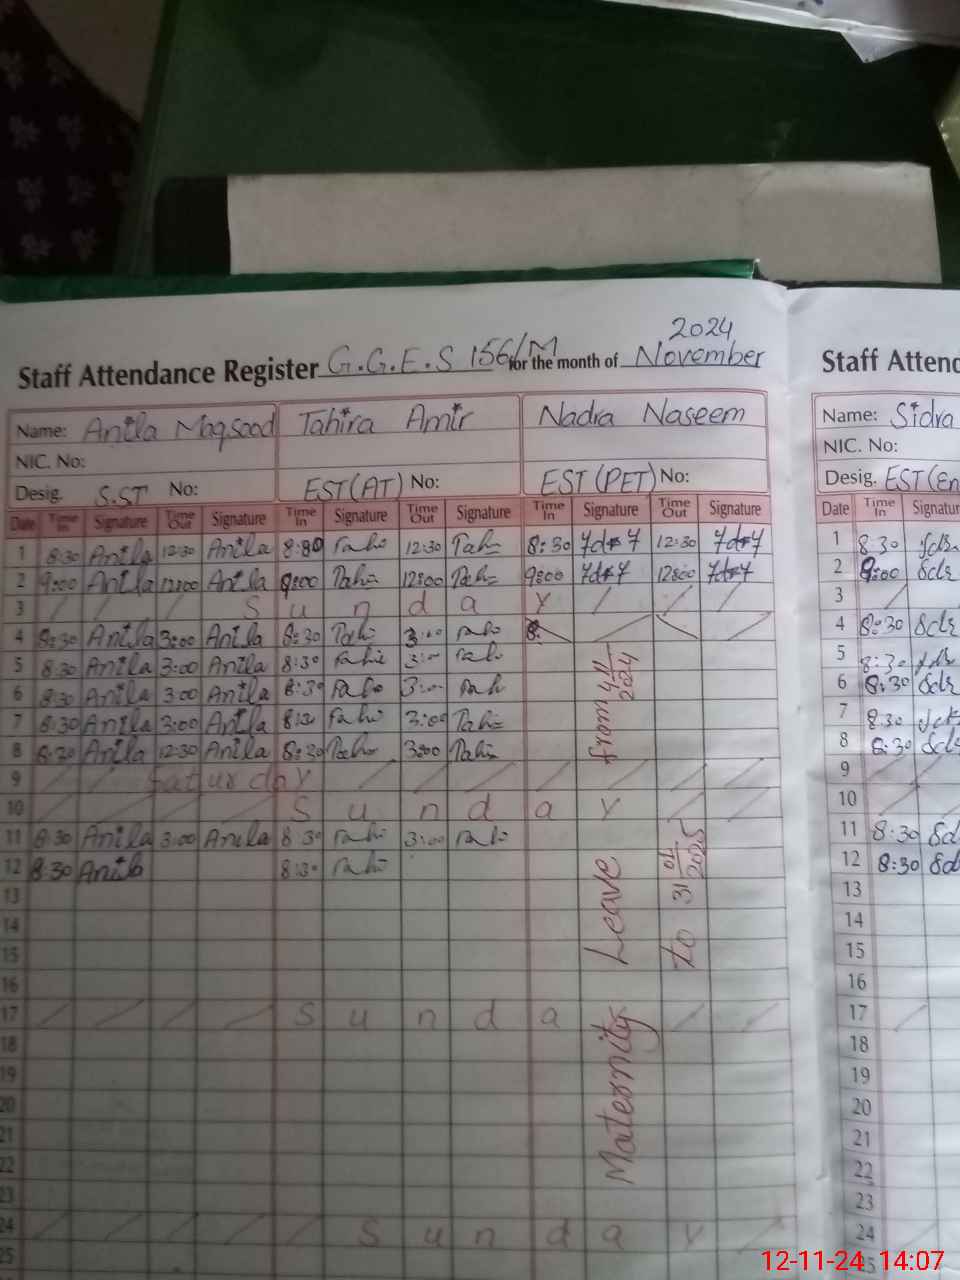 2024
Staff Attendance Register G.G.E.S 156/M for the month of November
Name: Anila Maqsood Tahira Amir Nadra Naseem
NIC. No:
Desig. S.ST No: EST(AT) No: EST(PET) No:
Date Time In Signature Time Out Signature Time In Signature Time Out Signature Time In Signature Time Out Signature
1 8:30 Anila 12:30 Anila 8:30 12:30 8:30 12:30
2 9:00 Anila 12:00 Anila 9:00 12:00 9:00 12:00
3 Sunday
4 8:30 Anila 3:00 Anila 8:30 3:00 8:
5 8:30 Anila 3:00 Anila 8:30 3:00
6 8:30 Anila 3:00 Anila 8:30 3:00
7 8:30 Anila 3:00 Anila 3:00
8 8:30 Anila 12:30 Anila 8:30 3:00
9 Saturday
10 Sunday
11 8:30 Anila 3:00 Anila 8:30 3:00
12 8:30 Anila 8:30
13
14
15
16
17 Sunday
18
19
20
21
22
23
24 Sunday
25
Maternity Leave from
to 31 01 2025
Staff Attend
Name: Sidra
NIC. No:
Desig. EST(En
Date Time In Signatur
1 8:30
2 9:00
3
4 8:30
5 8:30
6 8:30
7 8:30
8 8:30
9
10
11 8:30
12 8:30
13
14
15
16
17
18
19
20
21
22
23
24
25
12-11-24 14:07